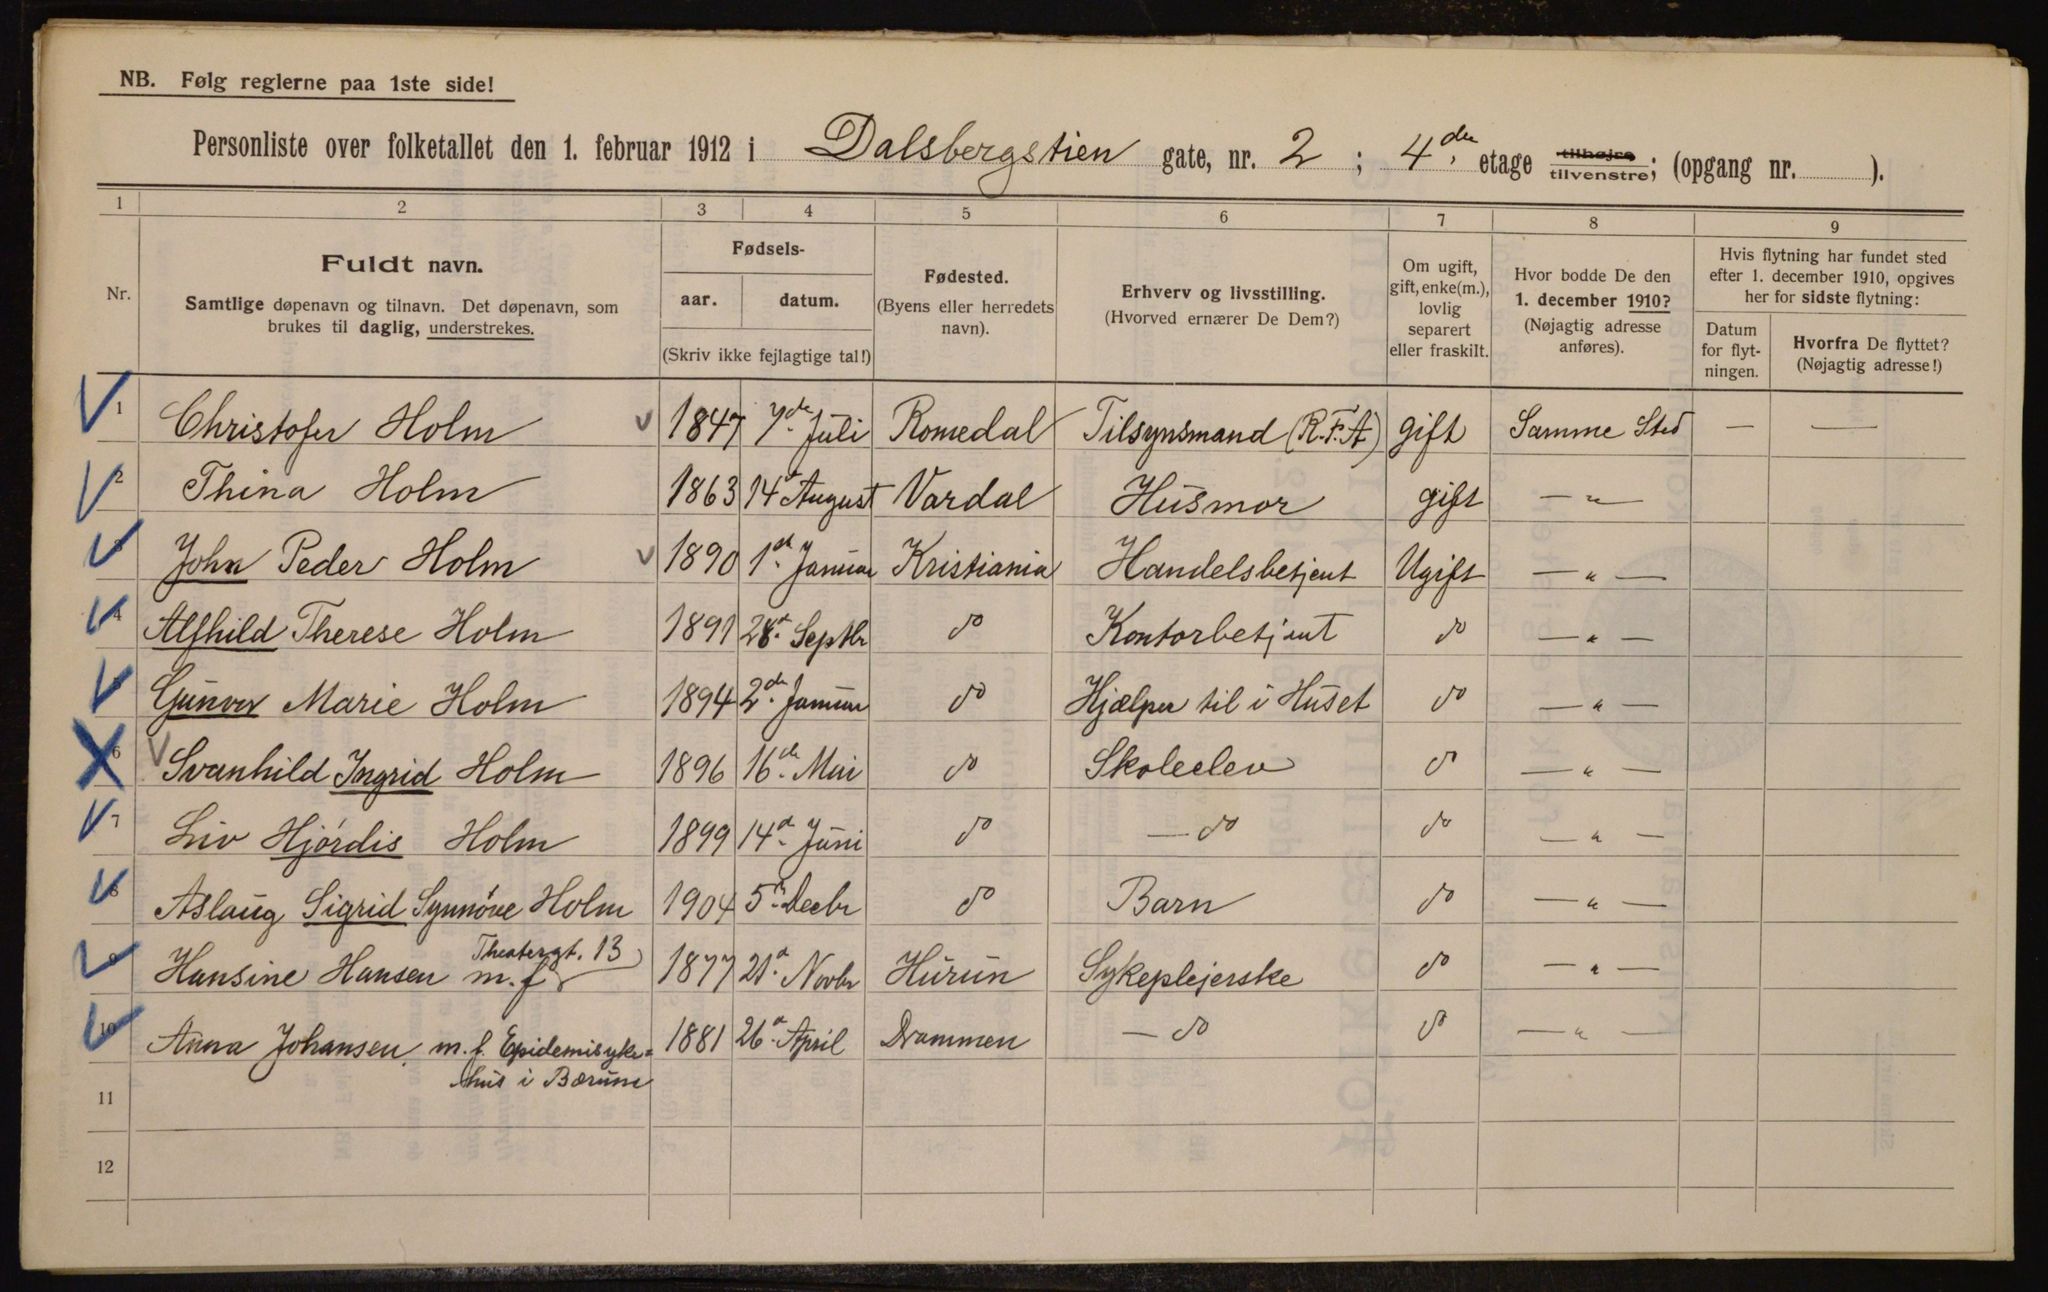 NB. Følg reglerne paa 1ste side!
Personliste over folketallet den 1. februar 1912 i Dalsbergstien gate, nr. 2 ; 4de etage tilhøjre tilvenstre; (opgang nr. ).
1 2 3 4 5 6 7 8 9
Nr.
Fuldt navn.
Samtlige døpenavn og tilnavn. Det døpenavn, som
brukes til daglig, understrekes.
Fødsels-
aar. datum.
(Skriv ikke fejlagtige tal!)
Fødested.
(Byens eller herredets
navn).
Erhverv og livsstilling.
(Hvorved ernærer De Dem?)
Om ugift,
gift, enke(m.),
lovlig
separert
eller fraskilt.
Hvor bodde De den
1. december 1910?
(Nøjagtig adresse
anføres).
Hvis flytning har fundet sted
efter 1. december 1910, opgives
her for sidste flytning:
Datum
for flyt-
ningen.
Hvorfra De flyttet?
(Nøjagtig adresse!)
1 Christofer Holm 1847 7de Juli Romedal Tilsynsmand (R.F.A) gift Samme Sted — —
2 Thina Holm 1863 14d August Vardal Husmor gift — " —
3 John Peder Holm 1890 1st Januar Kristiania Handelsbetjent Ugift — " —
4 Alfhild Therese Holm 1891 28d Septbr do Kontorbetjent do — " —
5 Gunvor Marie Holm 1894 2de Januar do Hjælper til i Huset do — " —
6 Svanhild Ingrid Holm 1896 16de Mai do Skoleelev do — " —
7 Liv Hjørdis Holm 1899 14d Juni do — do do — " —
8 Aslaug Sigrid Synnøve Holm 1904 5th Decbr do Barn do — " —
9 Hansine Hansen m.f. Theatergt. 13 1877 21d Novbr Hurum Sykeplejerske do — " —
10 Anna Johansen, m.f. Epidemisyke= 1881 26d April Drammen — do do — " —
hus i Bærum
11
12